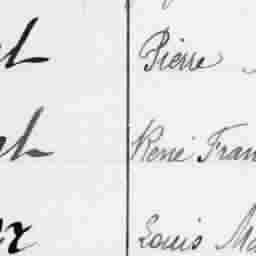 Pierre
René Fran
Louis Ma